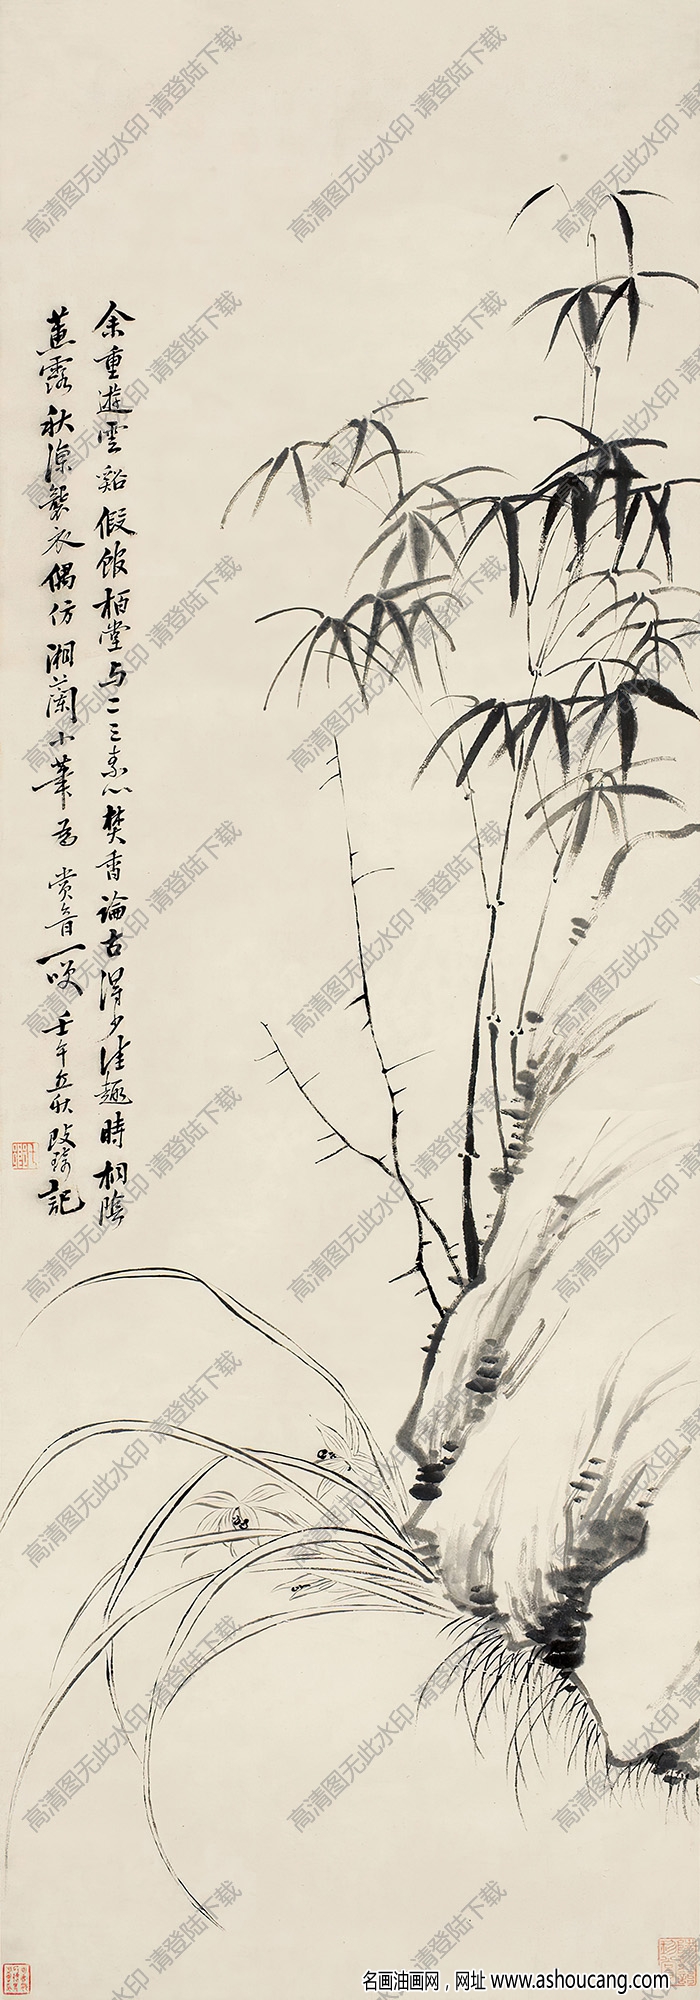 余重遊雲谿假館栢堂与二三素心焚香論古得少佳趣時桐陰
蕙露秋涼襲衣偶仿湘蘭小筆爲賞音一咲壬午孟秋改琦記
高清图无此水印 请登陆下载
名画油画网，网址 www.ashoucang.com